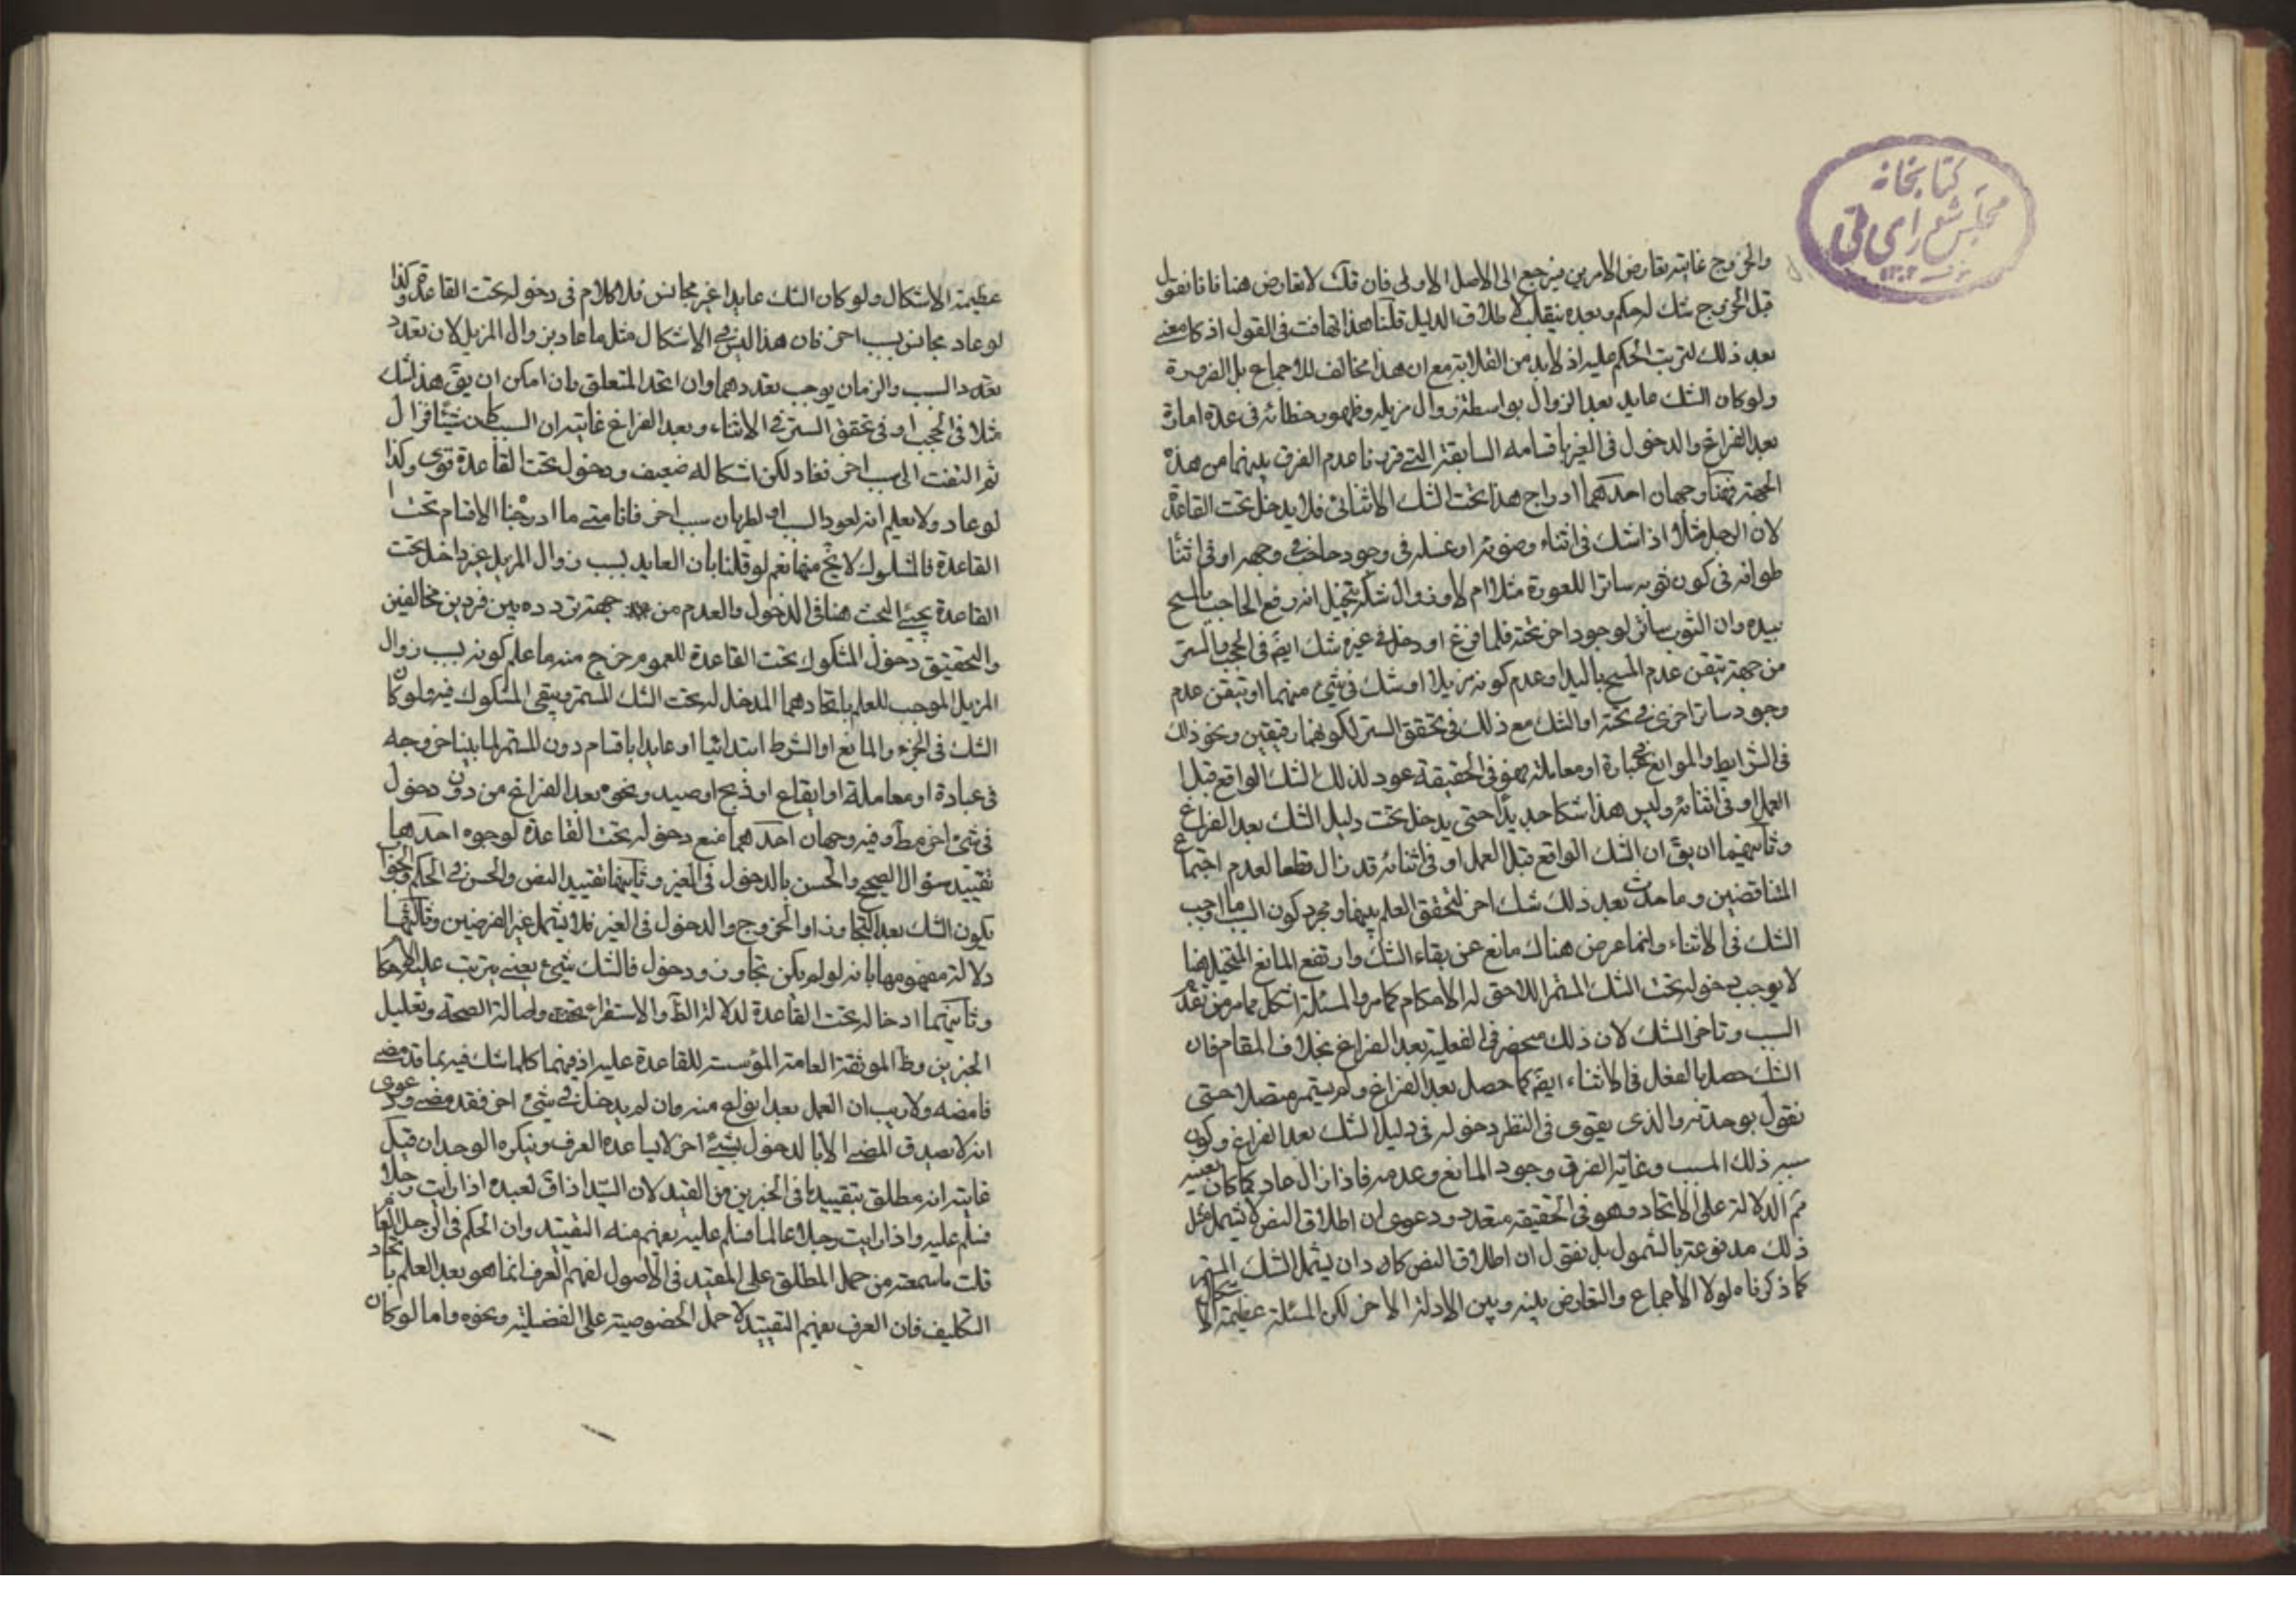 كتابخانه
مجلس شورای ملی
١٣٠٢
والخروج غايته تعارض الامرين فيرجع الى الاصل الاولى فان قلت لا تعارض هنا فانا نقول
قبل الخروج شك له حكم وبعده ينقلب لاطلاق الدليل قلنا هذا تهافت فى القول اذ لا معنى
بعد ذلك لترتب الحكم عليه اذ لا بد من القلابته مع ان هذا مخالف للاجماع بل الضرورة
ولو كان الشك عايد بعد الزوال بواسطة زوال مزيله وظهور خطائه فى عدة امارة
بعد الفراغ والدخول فى الغير باقسامه السابقة التى قررنا عدم الفرق بينهما من هذه
الجهة فهنا وجهان احدهما ادراج هذا تحت الشك الاثنائى فلا يدخل تحت القاعدة
لان الرجل مثلا اذا شك فى اثناء وضوئه او غسله فى وجود حاجب فى وجهه او فى اثناء
طوافه فى كون ثوبه ساترا للعورة مثلا ام لا وزوال شكه بتخيل انه رفع الحاجب بالمسح
بيده وان الثوب ساتر لوجود اخر تحته فلما فرغ او دخل فى غيره شك ايضا فى الحجب والستر
من جهة تيقن عدم المسح باليد او عدم كونه مزيلا او شك فى شئ منهما او تيقن عدم
وجود ساتر اخر فى تحته او الشك مع ذلك فى تحقق الستر لكونهما رقيقين ونحو ذلك
فى الشرايط والموانع فى عبادة او معاملة فهو فى الحقيقة عود لذلك الشك الواقع قبل
العمل او فى اثنائه وليس هذا شكا جديدا حتى يدخل تحت دليل الشك بعد الفراغ
وثانيهما ان يق ان الشك الواقع قبل العمل او فى اثنائه قد زال قطعا لعدم اجتماع
المتناقضين وما حدث بعد ذلك شك اخر لتحقق العلم بينهما ومجرد كون السبب ما اوجب
الشك فى الاثناء وانما عرض هناك مانع عن بقاء الشك وارتفع المانع المتخيل هنا
لا يوجب دخوله تحت الشك المستمر اللاحق له الاحكام كما مر والمسئلة اشكل مما مر من تعدد
السبب وتاخر الشك لان ذلك منحصر فى الفعلية بعد الفراغ بخلاف المقام فان
الشك حصل بالفعل فى الاثناء ايضا كما حصل بعد الفراغ ولم يستمر متصلا حتى
نقول بوحدته والذى يقوى فى النظر دخوله فى دليل الشك بعد الفراغ وكون
سببه ذلك المسبب وغاية الفرق وجود المانع وعدمه فاذا زال عاد كما كان بعينه
ثم الدلالة على الاتحاد وهو فى الحقيقة متعدد ودعوى ان اطلاق النص لا يشمل مثل
ذلك مدفوعة بالشمول بل نقول ان اطلاق النص كاد ان يشمل الشك المستمر
كما ذكرناه لولا الاجماع والتعارض بينه وبين الادلة الاخر لكن المسئلة عظيمة الاشكال
عظيمة الاشكال ولو كان الشك عايدا غير مجانس فلا كلام فى دخوله تحت القاعدة وكذا
لو عاد مجانس بسبب اخر فان هذا ليس فى الاشكال مثل ما عاد بزوال المزيل لان تعدد
تعدد السبب والزمان يوجب تعددهما وان اتحد المتعلق وان امكن ان يق هذا شك
مثلا فى الحجب او فى تحقق الستر فى الاثناء وبعد الفراغ غايته ان السبب كان شيئا فزال
ثم التفت الى سبب اخر فعاد لكن اشكاله ضعيف ودخوله تحت القاعدة قوى وكذا
لو عاد ولا يعلم انه لعود السبب او لطريان سبب اخر فانا متى ما ادرجنا الاقسام تحت
القاعدة فالمشكوك لا يخ منها نعم لو قلنا بان العايد بسبب زوال المزيل غير داخل تحت
القاعدة يجيئ البحث هنا فى الدخول والعدم من جهة تردده بين فردين مخالفين
والتحقيق دخول المشكوك تحت القاعدة للعموم خرج منه ما علم كونه بسبب زوال
المزيل الموجب للعلم باتحادهما المدخل له تحت الشك المستمر ويبقى المشكوك فيه ولو كان
الشك فى الجزء والمانع او الشرط ابتدائيا او عايدا باقسام دون المستمر لما بينا خروجه
فى عبادة او معاملة او ايقاع او ذبح او صيد ونحوه بعد الفراغ من دون دخول
فى شئ اخر مط وفيه وجهان احدهما منع دخوله تحت القاعدة لوجوه احدها
تقييد سؤال الصحيح والحسن بالدخول فى الغير وثانيهما تقييد النص والحسن فى الحكم والجواب
بكون الشك بعد التجاوز او الخروج والدخول فى الغير فلا يشمل غير الفرضين وثالثها
دلالة مفهومهما بانه لو لم يكن تجاوز ودخول فالشك شئ يعنى يترتب عليه الاحكام
وثانيهما ادخاله تحت القاعدة لدلالة الظ والاستقراء واصالة الصحة وتعليل
الخبرين وظ الموثقة العامة المؤسسة للقاعدة عليه اذ فيهما كلما شك فيه مما قد مضى
فامضه ولا ريب ان العمل بعد الفراغ منه وان لم يدخل فى شئ اخر فقد مضى ودعوى
انه لا يصدق المضى الا بالدخول بشئ اخر لا يساعده العرف وينكره الوجدان قيل
غايته انه مطلق بتقييدها فى الخبرين من القيد لان السيد اذا ق لعبده اذا رايت رجلا
فسلم عليه واذا رايت رجلا عالما فسلم عليه يفهم منه التقييد وان الحكم فى الرجل العالم
قلت ما سمعته من حمل المطلق على المقيد فى الاصول لفهم العرف انما هو بعد العلم باتحاد
التكليف فان العرف يفهم التقييد لا حمل الخصوصية على الفضيلة ونحوه واما لو كان